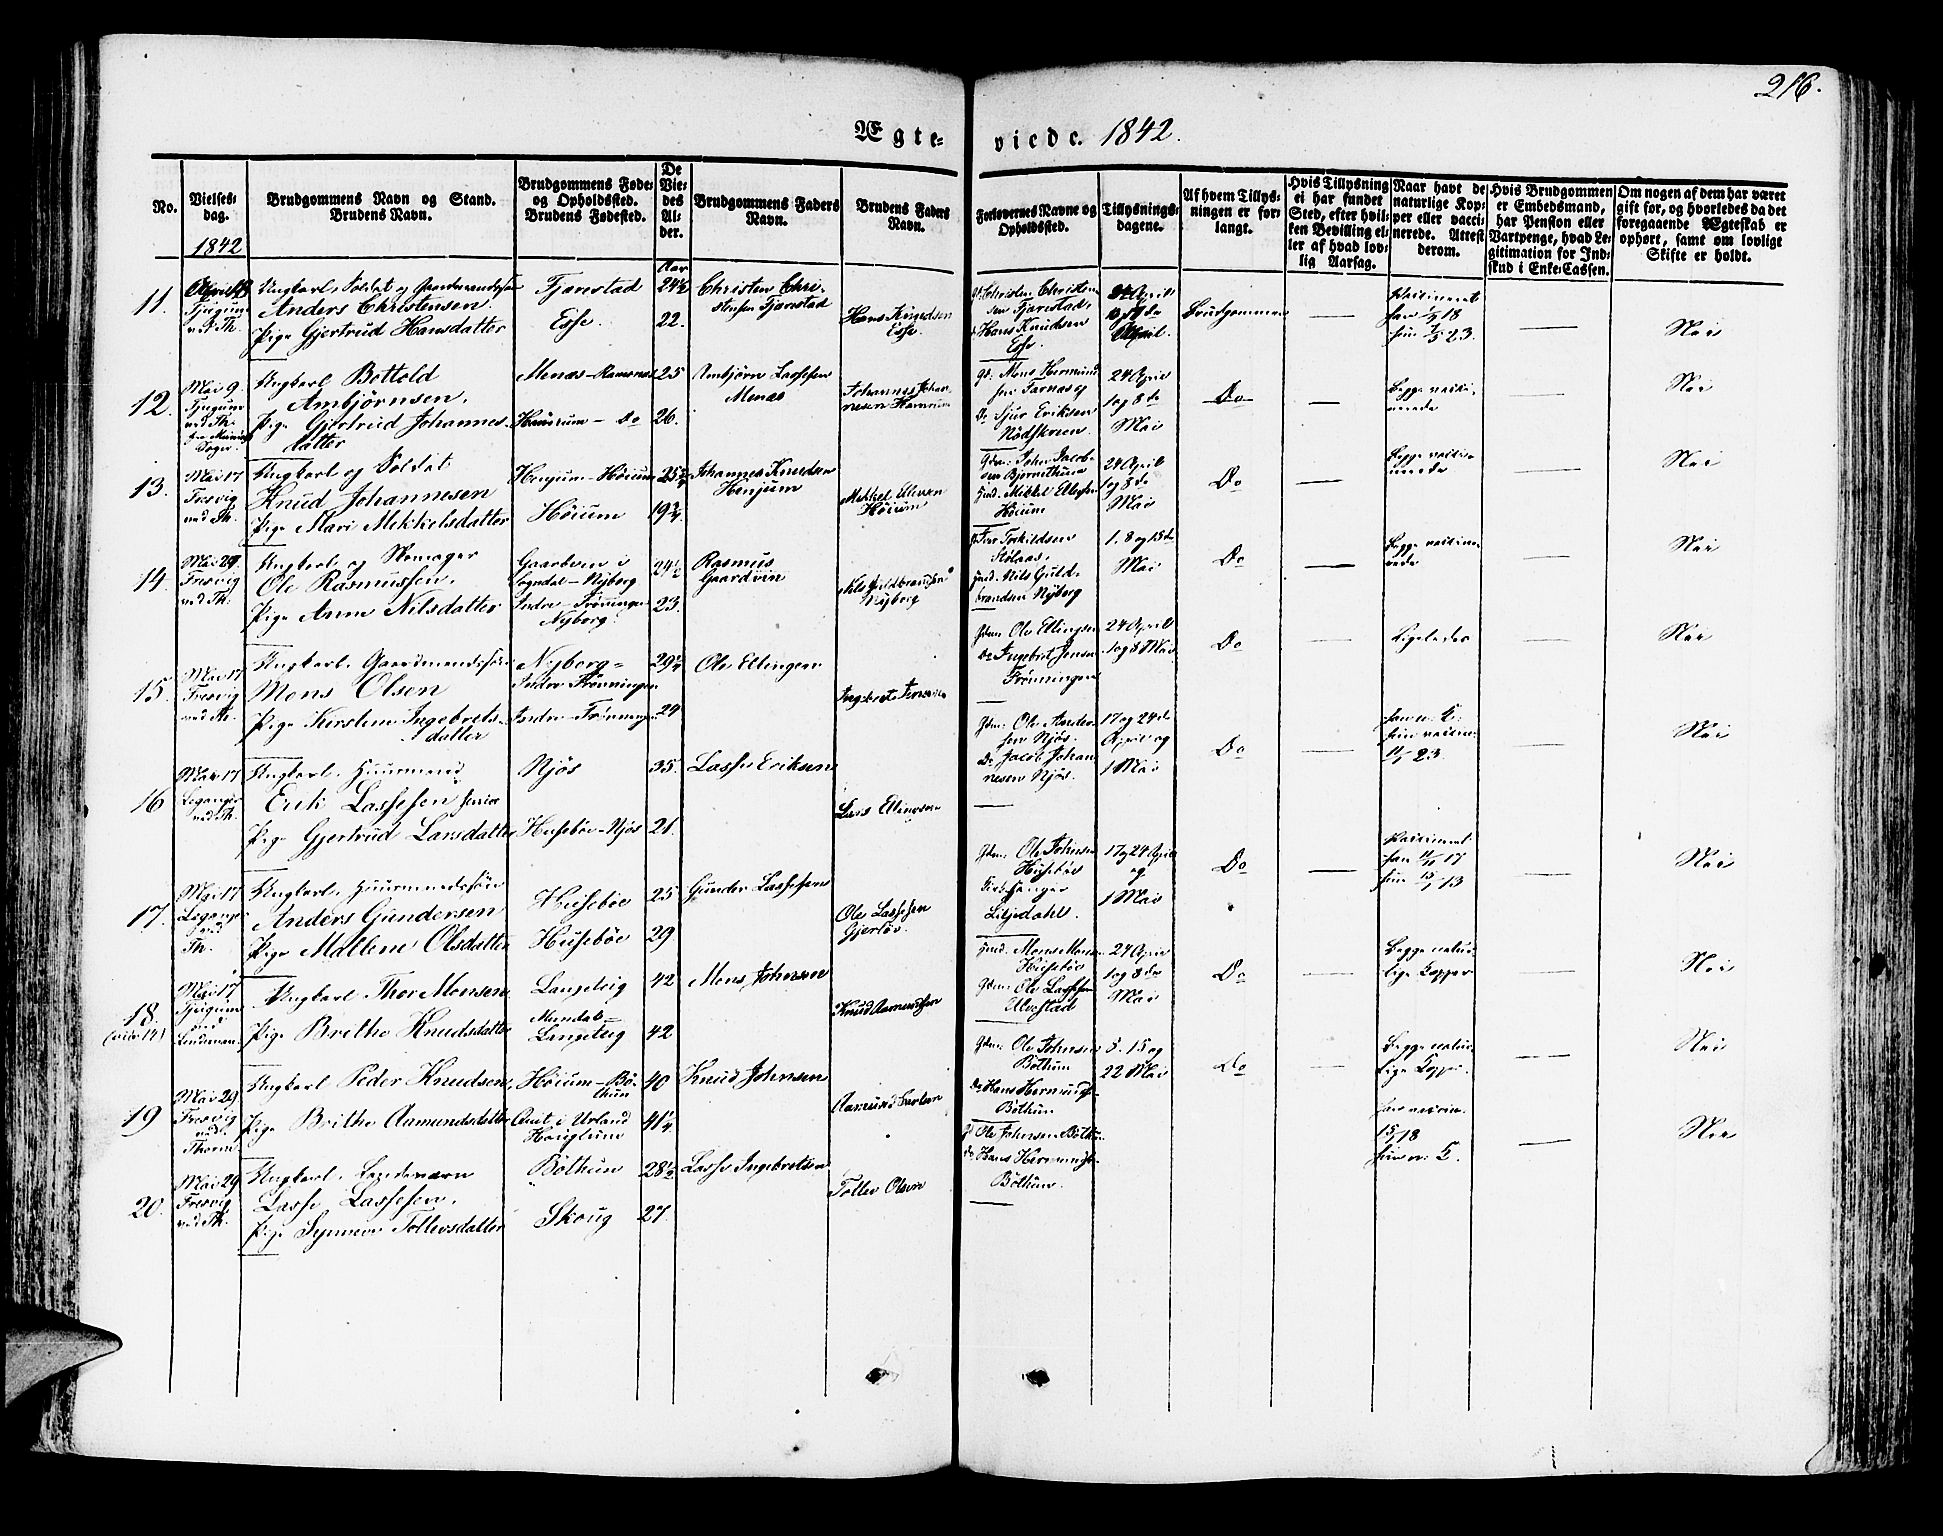 216.
Ægte-
viede. 1842.
No.
Vielses-
dag.
1842
Brudgommens Navn og Stand.
Brudens Navn.
Brudgommens Føde-
og Opholdssted.
Brudens Fødested.
De
Vie-
des
Al-
der.
Brudgommens Faders
Navn.
Brudens Faders
Navn.
Forlovernes Navne og
Opholdssted.
Tillysnings-
dagene.
Af hvem Tillys-
ningen er for-
langt.
Hvis Tillysning
ei har fundet
Sted, efter hvil-
ken Bevilling el-
ler af hvad lov-
lig Aarsag.
Naar havt de
naturlige Kop-
per eller vacci-
nerede. Attest
derom.
Hvis Brudgommen
er Embedsmand,
har Pension eller
Vartpenge, hvad Le-
gitimation for Ind-
skud i Enke-Cassen.
Om nogen af dem har været
gift før, og hvorledes da det
foregaaende Ægteskab er
ophørt, samt om lovlige
Skifte er holdt.
11.
Tjugum
ved Th.
Ungkarl, Soldat og
Anders Christensen
Pige Gjertrud Hansdatter
Tjarestad
Esse.
Aar
24½
22.
Christen Chri-
stensen Tjarestad
Hans Knudsen
Esse.
Christen Christen-
sen Tjarestad,
Hans Knudsen
Esse.
April
Brudgommen
Vaccineret
23.
Nei
12.
Mai 9.
Tjugum
ved Th.
Ungkarl Bottold
Ambjørnsen.
Pige Gjertrud Johannes-
datter
Menæs-Ramsnæs
Hamrum - Do
25
26.
Ambjørn Lassesen
Menæs
Johannes Johan-
nesen Hamrum
Mons Hermund-
sen Farnæs og
Do Sjur Eriksen
Nødskreen
24 April
1 og 8 de
Mai
Do
Begge vacci-
nerede
Nei
13.
Mai 17
Fresvig
ved Th.
Ungkarl og Soldat
Knud Johannesen
Pige Mari Mikkelsdatter
Henjum-Høium
Høium
19¾
Johannes Knudsen
Henjum
Mikkel Ellevsen
Høium
Gdm. John Jacob-
sen Bjørnethun
Hmd. Mikkel Ellevsen
Høium
24 April
1 og 8 de
Mai
Do
Begge vacci-
nerede
Nei
14.
Mai 29.
Fresvig
ved Th.
Ungkarl og Skomager
Ole Rasmussen.
Pige Anne Nilsdatter
Gaarden i
Sogndal-Nyborg
Indre-Frønningen
Nyborg
24½
23
Rasmus
Gaarden
Nils Guldbrandsen
Nyborg
Torkildsen
Hmd. Nils Guld-
brandsen Nyborg
1. 8 og 15 de
Mai
Do
Begge vaccine-
rede
Nei
15.
Mai 17
Fresvig
ved Th.
Ungkarl Gaardmandssøn
Mons Olsen
Pige Kirstine Ingebrets-
datter
Nyborg-
Indre Frønningen
Indre-Frønningen
29¼
24
Ole Ellingsen
Ingebret Jensen
Gdm. Ole Ellingsen
Do Ingebret Jensen
Frønningen
24 April
1 og 8 Mai
Do
Ligeledes
Nei
16
Mai 17
Leganger
ved Th.
Ungkarl Huusmand
Erik Lassesen
Pige Gjertrud Larsdatter
Njøs
Husebøe-Njøs
35.
21.
Lasse Eriksen
Lars Ellingsen
Gdm: Ole Ander-
sen Njøs.
Do Jacob Johan-
nesen Njøs.
17 og 24 de
April og
1 Mai
Do
23.
Nei
17.
Mai 17
Leganger
ved
Th.
Ungkarl Huusmandssøn
Anders Gundersen
Pige Mallene Olsdatter
Husebøe
Husebøe
25
29
Gunder Lassesen
Ole Lassesen
Gjerløv
Gdm: Ole Johnsen
Husebøe
Kirkesanger
Liljedahl.
17 og 24 April
og
1 Mai
Do
Vaccineret
Nei
18.
Mai 17
Tjugum
ved
Lindeman.
Ungkarl Thor Monsen
Pige Brethe Knudsdatter
Langeteig
Mundal-
Langeteig
42
42
Mons Johnsen
Knud Aamundsen
Hmd. Mons Monsen
Husebøe
Gdm: Ole Lassesen
Ellvestad
24 April
1 og 8 de
Mai
Do
Begge natur-
lige Kopper
Nei
19
Mai 29
Fresvig
ved
Thorm.
Ungkarl Peder Knudsen.
Pige Brithe Aamundsdatter
Høium - Bø-
thun
i Urland
40
41¼
Knud Johnsen
Gdm: Ole Johnsen
Bøthun
Do Hans Hermunds-
Bøthun
8. 15 og
22 Mai
Do
Begge natur-
lige Kopper.
Nei
20.
Mai 29
Fresvig
ved Th.
Ungkarl, Landeværn
Lasse Lassesen.
Pige Synneve Tollevsdatter
Bøthun
Skoug
28½
27.
Lasse Ingebretsen
Tollev Olsen
Ole Johnsen Bøthun
do Hans Hermunds-
Bøthun.
Nei